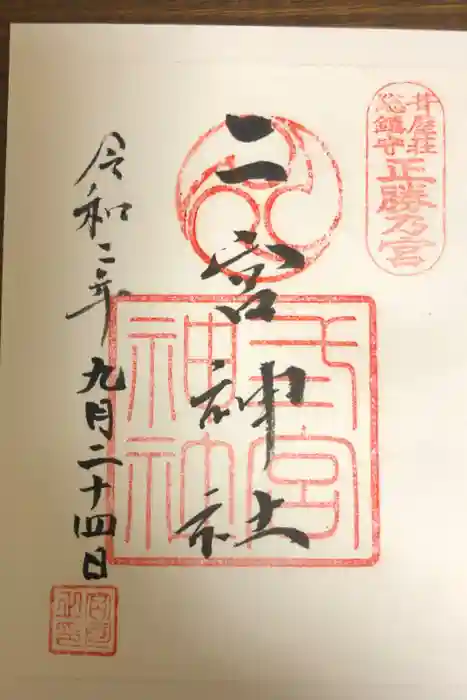 屋荘
総鎮守
正勝乃宮
二宮神社
弍宮
神社
令和二年九月二十四日